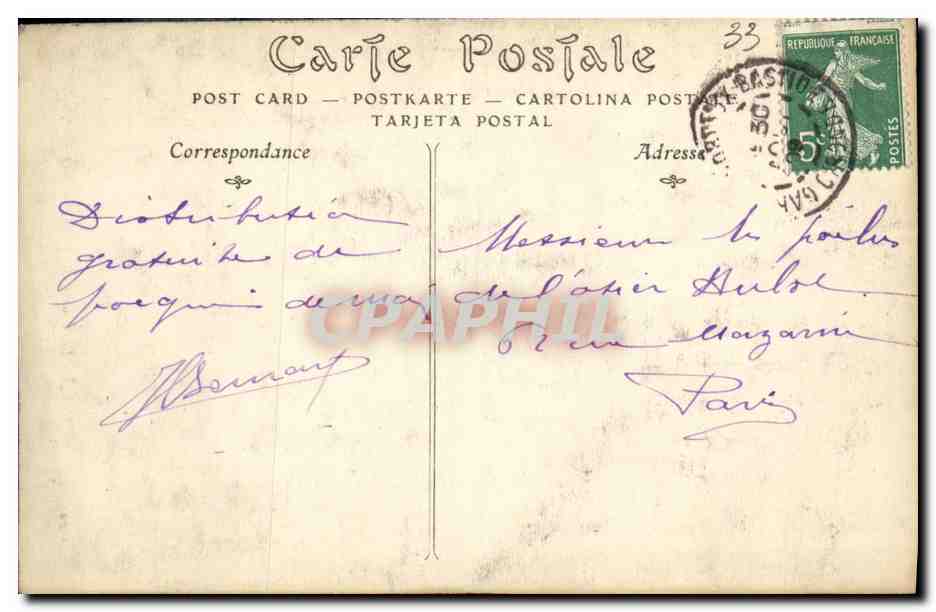 33
Carte Postale
POST CARD — POSTKARTE — CARTOLINA POSTALE
TARJETA POSTAL
REPUBLIQUE FRANÇAISE
5c
POSTES
Correspondance
Adresse
Distribution
gratuite de
de mai
Messieurs les poilus
de l'
rue Mazarine
Paris
CPAPHIL